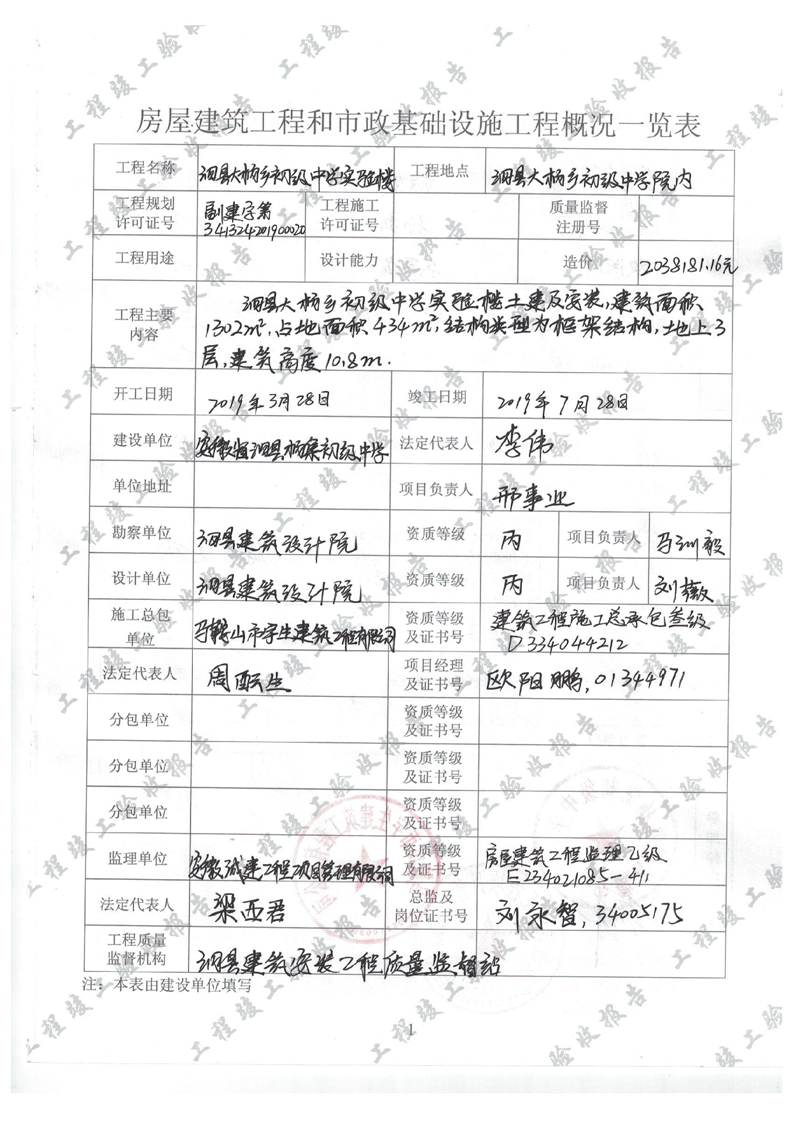 房屋建筑工程和市政基础设施工程概况一览表
工程名称 泗县大杨乡初级中学实验楼 工程地点 泗县大杨乡初级中学院内
工程规划 工程施工 质量监督
许可证号 副建字第 许可证号 注册号
341324201900020
工程用途 设计能力 造价 2038181.16元
工程主要
内容
泗县大杨乡初级中学实验楼土建及安装,建筑面积
1302m²,占地面积434m²,结构类型为框架结构,地上3
层,建筑高度10.8m.
开工日期 2019年3月28日 竣工日期 2019年7月28日
建设单位 安徽省泗县杨集初级中学 法定代表人 李伟
单位地址 项目负责人 邢事业
勘察单位 泗县建筑设计院 资质等级 丙 项目负责人 马训毅
设计单位 泗县建筑设计院 资质等级 丙 项目负责人 刘薇
施工总包 资质等级 建筑工程施工总承包叁级
单位 马鞍山市宇生建筑工程有限公司 及证书号 D334044212
法定代表人 周 生 项目经理
及证书号 欧阳鹏,01344971
分包单位 资质等级
及证书号
分包单位 资质等级
及证书号
分包单位 资质等级
及证书号
监理单位 安徽诚建工程项目管理有限公司 资质等级 房屋建筑工程监理乙级
及证书号 E234021085-4/1
法定代表人 梁西君 总监及
岗位证书号 刘永智,34005175
工程质量
监督机构 泗县建筑安装工程质量监督站
注:本表由建设单位填写
1
工程竣工验收报告